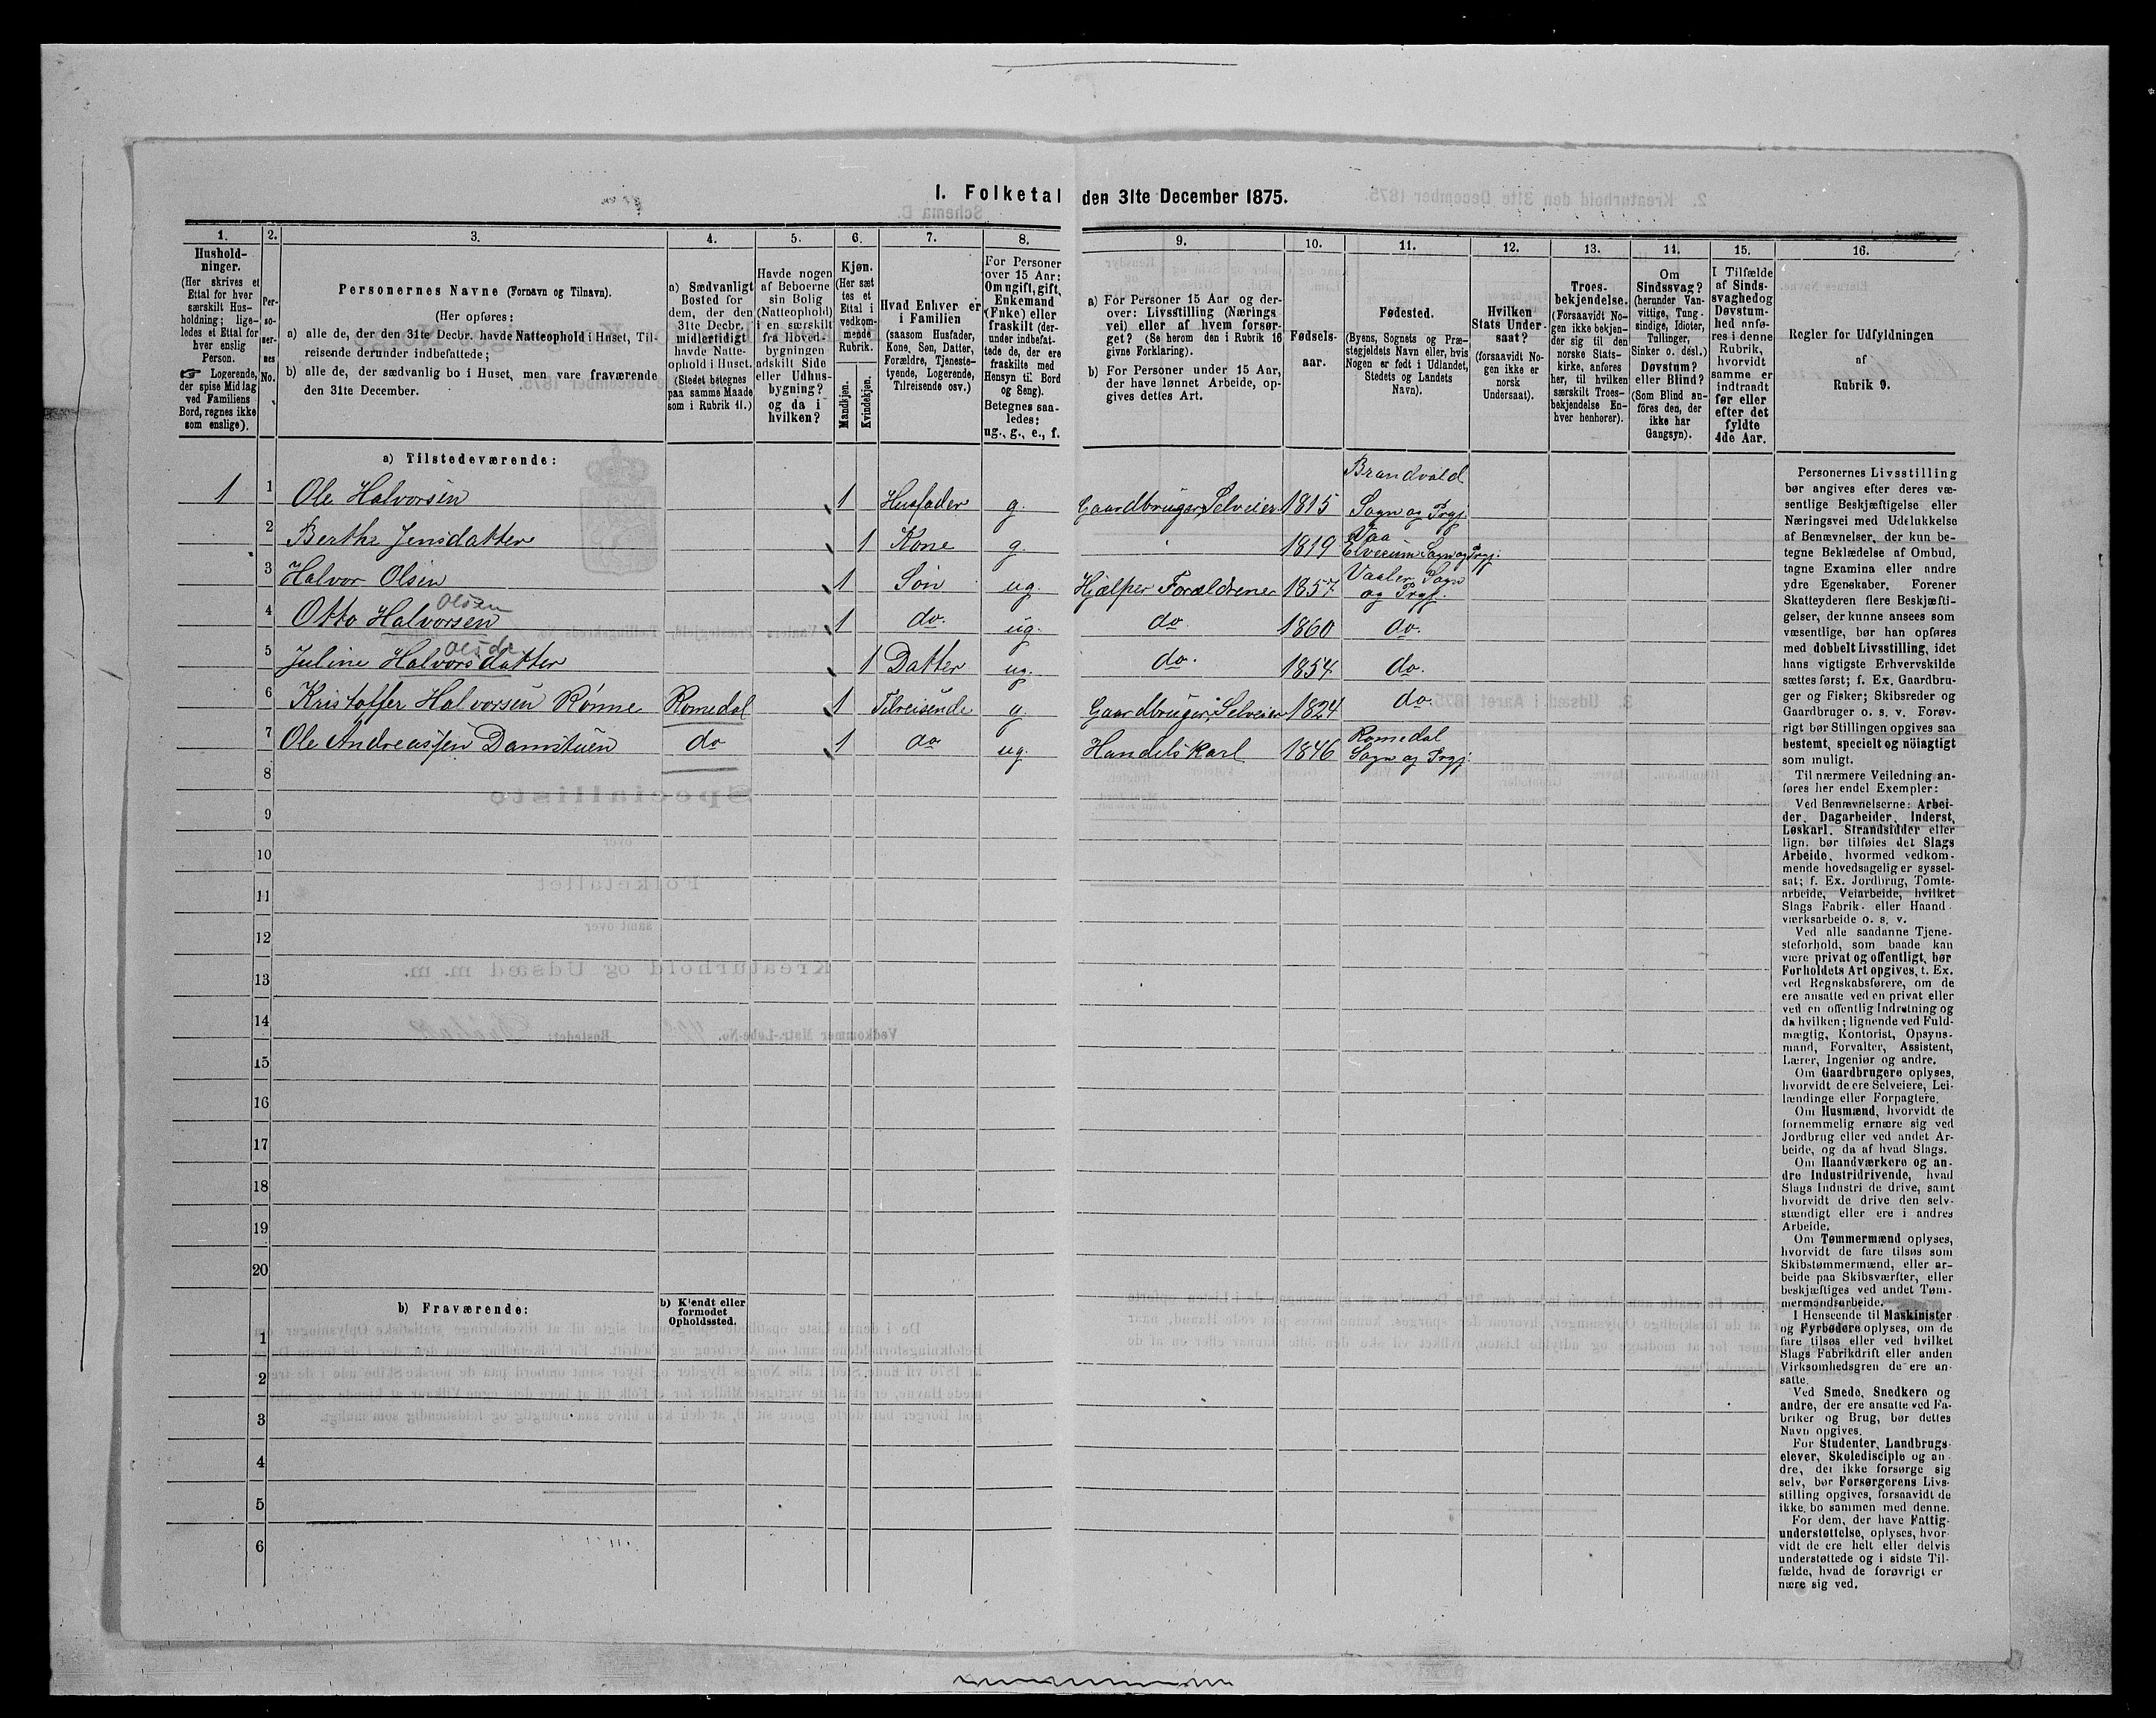 I. Folketal den 31te December 1875.
1. 2. 3. 4. 5. 6. 7. 8. 9. 10. 11. 12. 13. 14. 15. 16.
Hushold-
ninger.
(Her skrives et
Ettal for hver
særskilt Hus-
holdning; lige-
ledes et Ettal for
hver enslig
Person.
☞ Logerende,
der spise Middag
ved Familiens
Bord, regnes ikke
som enslige).
Per-
so-
ner-
nes
No.
Personernes Navne (Fornavn og Tilnavn).
(Her opføres:
a) alle de, der den 31te Decbr. havde Natteophold i Huset, Til-
reisende derunder indbefattede;
b) alle de, der sædvanlig bo i Huset, men vare fraværende
den 31te December.
a) Sædvanligt
Bosted for
dem, der den
31te Decbr.
midlertidigt
havde Natte-
ophold i Huset.
(Stedet betegnes
paa samme Maade
som i Rubrik 11.)
Havde nogen
af Beboerne
sin Bolig
(Natteophold)
i en særskilt
fra Hoved-
bygningen
adskilt Side
eller Udhus-
bygning?
og da i
hvilken?
Kjøn.
(Her sæt
tes et
Ettal i
vedkom-
mende
Rubrik.
Mandkjøn.
Kvindekjøn.
Hvad Enhver er
i Familien
(saasom Husfader,
Kone, Søn, Datter,
Forældre, Tjeneste-
tyende, Logerende,
Tilreisende osv.)
For Personer
over 15 Aar:
Om ugift, gift,
Enkemand
(Enke) eller
fraskilt (der-
under indbefat-
tede de, der ere
fraskilte med
Hensyn til Bord
og Seng).
Betegnes saa-
ledes:
ug., g., e., f.
a) For Personer 15 Aar og der-
over: Livsstilling (Nærings
vei) eller af hvem forsør-
get? (Se herom den i Rubrik 16
givne Forklaring).
b) For Personer under 15 Aar,
der have lønnet Arbeide, op-
gives dettes Art.
Fødsels-
aar.
Fødested.
(Byens, Sognets og Præ-
stegjeldets Navn eller, hvis
Nogen er født i Udlandet,
Stedets og Landets
Navn).
Hvilken
Stats Under-
saat?
(forsaavidt No-
gen ikke er
norsk
Undersaat).
Troes-
bekjendelse.
(Forsaavidt No-
gen ikke bekjen-
der sig til den
norske Stats-
kirke, anføres
her, til hvilken
særskilt Troes-
bekjendelse En-
hver henhører).
Om
Sindssvag?
(herunder Van-
vittige, Tung-
sindige, Idioter,
Tullinger,
Sinker o. desl.)
Døvstum?
eller Blind?
(Som Blind an-
føres den, der
ikke har
Gangsyn).
I Tilfælde
af Sinds-
svaghed og
Døvstum-
hed anfø-
res i denne
Rubrik,
hvorvidt
samme er
indtraadt
før eller
efter det
fyldte
4de Aar.
Regler for Udfyldningen
af
Rubrik 9.
a) Tilstedeværende:
Brandvold
1 1 Ole Halvorsen 1 Husfader g. Gaardbruger Selveier 1815 Sogn og Prgj.
2 Berthe Jensdatter 1 Kone g. 1819 Vaa Elverum Sogn og Prgj.
3 Halvor Olsen 1 Søn ug. Hjælper Forældrene 1857 Vaaler Sogn og Prgj.
Olsen
4 Otto Halvorsen 1 do. ug. do. 1860 do.
Olsd.
5 Juline Halvorsdatter 1 Datter ug. do. 1854 do.
6 Kristoffer Halvorsen Rønne Romedal 1 Tilreisende g. Gaardbruger Selveier 1824 do.
7 Ole Andreassen Damstuen do 1 do ug. Handelskarl 1846 Romedal Sogn og Prgj.
8
9
10
11
12
13
14
15
16
17
18
19
20
b) Fraværende:
b) Kjendt eller
formodet
Opholdssted.
1
2
3
4
5
6
Personernes Livsstilling
bør angives efter deres væ-
sentlige Beskjæftigelse eller
Næringsvei med Udelukkelse
af Benævnelser, der kun be-
tegne Beklædelse af Ombud,
tagne Examina eller andre
ydre Egenskaber. Forener
Skatteyderen flere Beskjæfti-
gelser, der kunne ansees som
væsentlige, bør han opføres
med dobbelt Livsstilling, idet
hans vigtigste Erhvervskilde
sættes først; f. Ex. Gaardbru-
ger og Fisker; Skibsreder og
Gaardbruger o. s. v. Forøv-
rigt bør Stillingen opgives saa
bestemt, specielt og nöiagtigt
som muligt.
Til nærmere Veiledning an-
føres her endel Exempler:
Ved Benævnelserne: Arbei-
der, Dagarbeider, Inderst,
Løskarl, Strandsidder eller
lign. bør tilføies det Slags
Arbeide, hvormed vedkom-
mende hovedsagelig er syssel-
sat; f. Ex. Jordbrug, Tomte-
arbeide, Veiarbeide, hvilket
Slags Fabrik- eller Haand-
værksarbeide o. s. v.
Ved alle saadanne Tjene-
steforhold, som baade kan
være privat og offentligt, bør
Forholdets Art opgives, t. Ex.
ved Regnskabsførere, om de
ere ansatte ved en privat eller
ved en offentlig Indretning og
da hvilken; lignende ved Fuld-
mægtig, Kontorist, Opsyns-
mand, Forvalter, Assistent,
Lærer, Ingeniør og andre.
Om Gaardbrugere oplyses,
hvorvidt de ere Selveiere, Lei-
lændinge eller Forpagtere.
Om Husmænd, hvorvidt de
fornemmelig ernære sig ved
Jordbrug eller ved andet Ar-
beide, og da af hvad Slags.
Om Haandværkere og an-
dre Industridrivende, hvad
Slags Industri de drive, samt
hvorvidt de drive den selv-
stændigt eller ere i andres
Arbeide.
Om Tømmermænd oplyses,
hvorvidt de fare tilsøs som
Skibstømmermænd, eller ar-
beide paa Skibsværfter, eller
beskjæftiges ved andet Tøm-
mermandsarbeide.
I Henseende til Maskinister
og Fyrbødere oplyses, om de
fare tilsøs eller ved hvilket
Slags Fabrikdrift eller anden
Virksomhedsgren de ere an-
satte.
Ved Smede, Snedkere og
andre, der ere ansatte ved Fa-
briker og Brug, bør dettes
Navn opgives.
For Studenter, Landbrugs-
elever, Skoledisciple og an-
dre, der ikke forsørge sig
selv, bør Forsørgerens Livs-
stilling opgives, forsaavidt de
ikke bo sammen med denne.
For dem, der have Fattig-
understøttelse, oplyses, hvor-
vidt de ere helt eller delvis
understøttede og i sidste Til-
fælde, hvad de forøvrigt er-
nære sig ved.